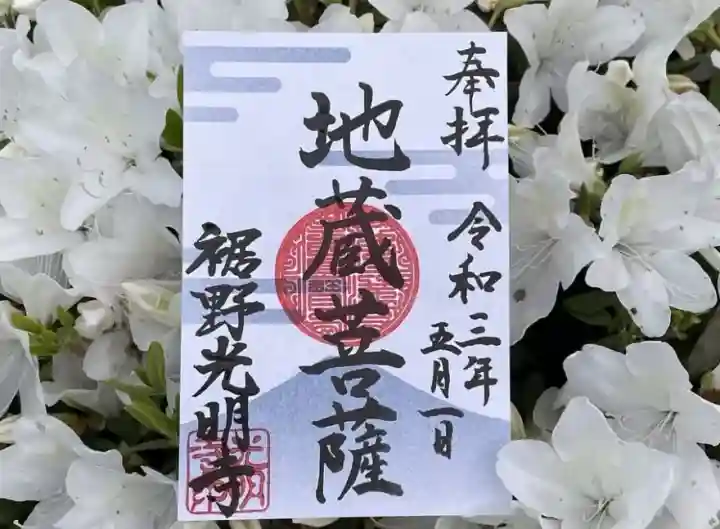 奉拝 令和三年
五月一日
地蔵菩薩
裾野光明寺